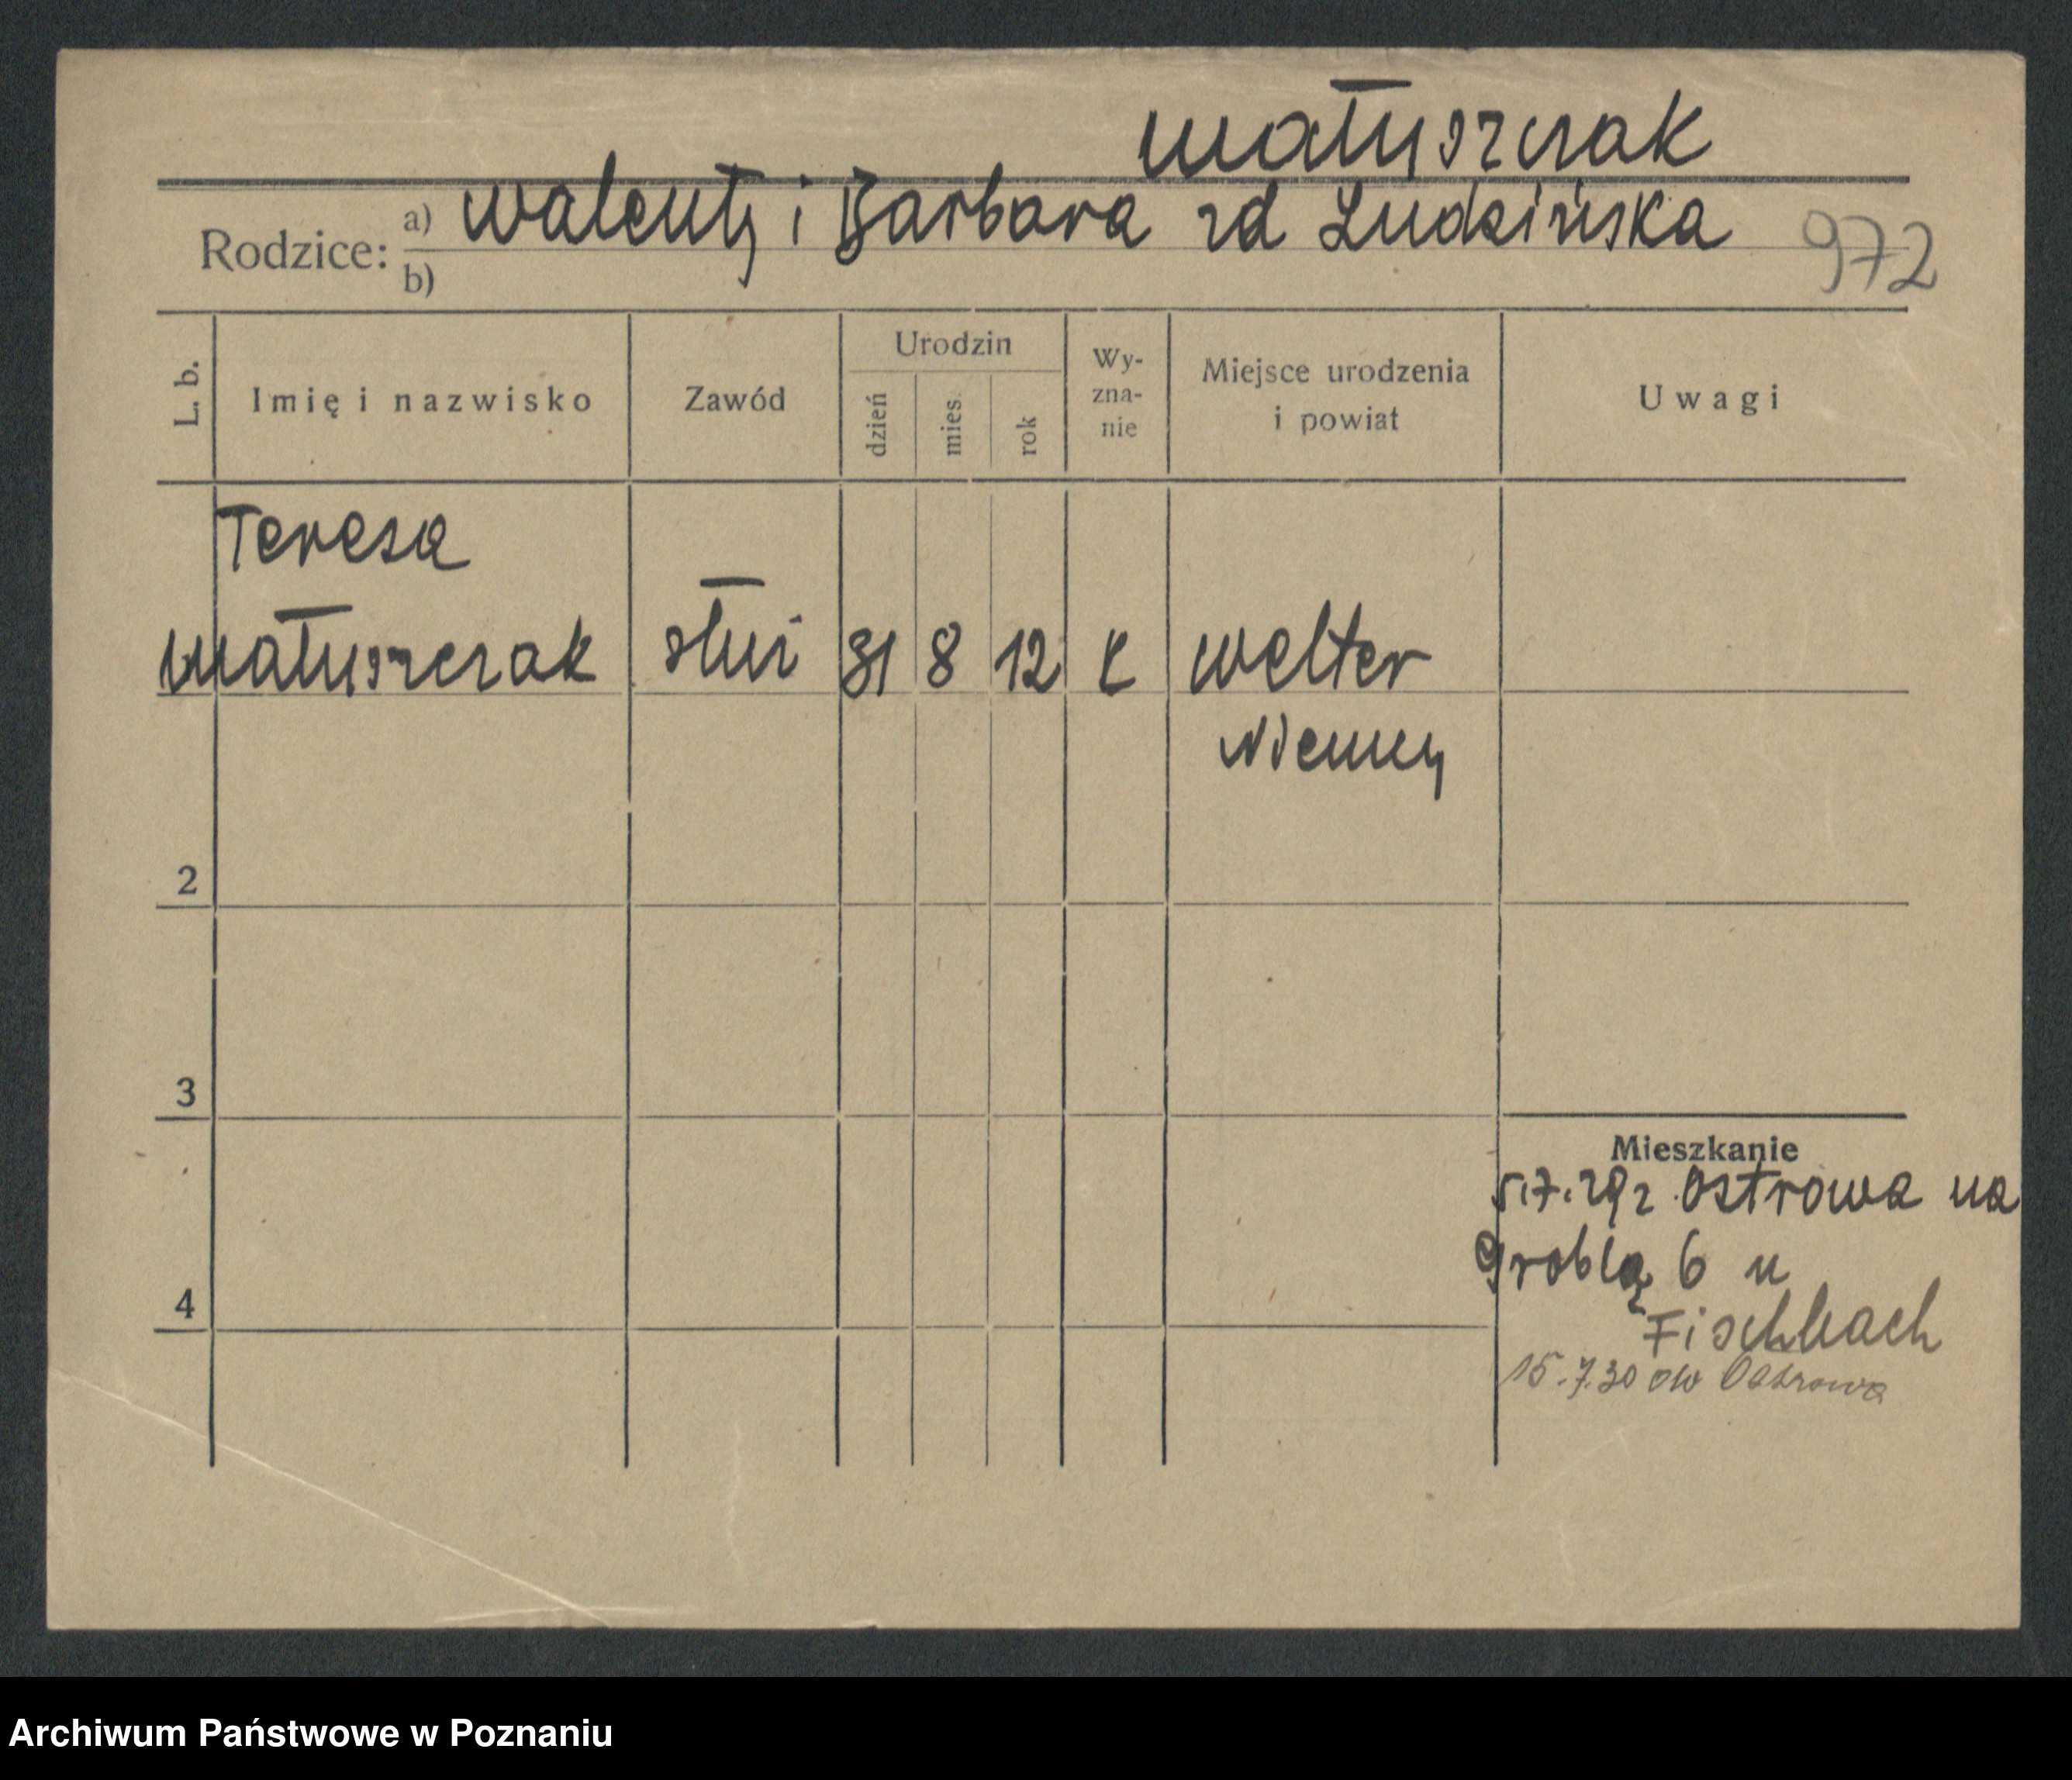 Matuszczak
Rodzice: a) Walenty i Barbara zd Ludzińska
b)
972
L. b. Imię i nazwisko Zawód Urodzin dzień mies. rok Wy-zna-nie Miejsce urodzenia i powiat Uwagi
Teresa
Matuszczak służ 31 8 12 k Welter
Niemcy
2
3
Mieszkanie
5.7.29 z Ostrowa na
Groblą 6 u
4
Fischbach
15.7.30 do Ostrowa
Archiwum Państwowe w Poznaniu